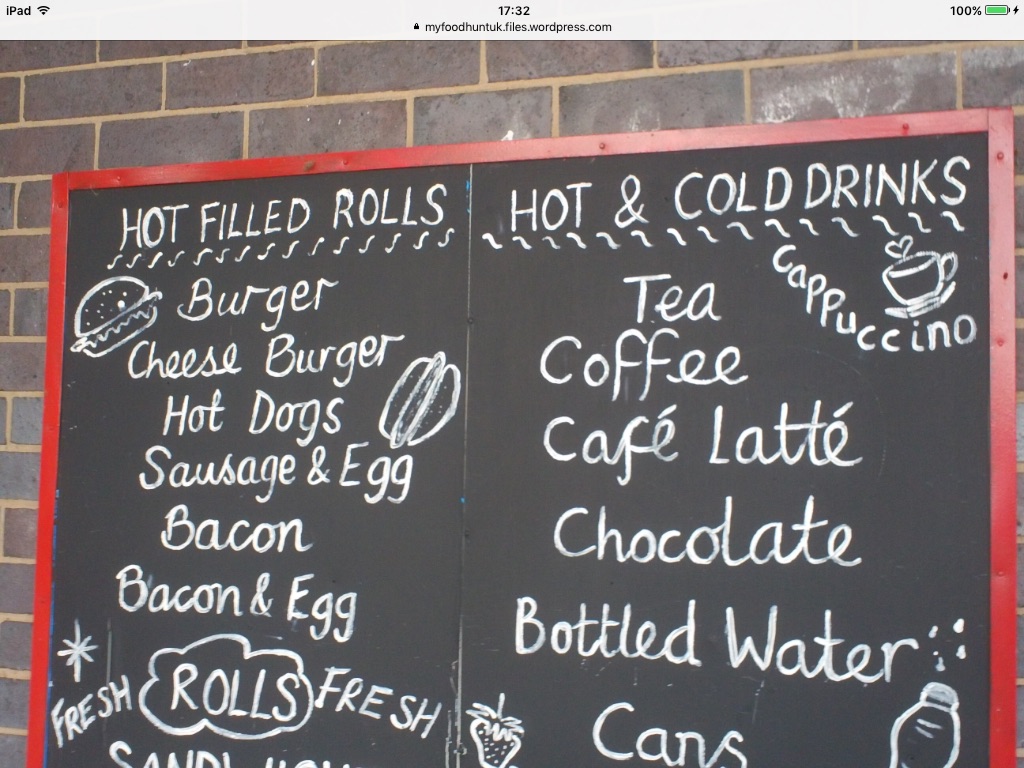 iPad 17:32 100%
myfoodhuntuk.files.wordpress.com
HOT FILLED ROLLS
Burger
Cheese Burger
Hot Dogs
Sausage & Egg
Bacon
Bacon & Egg
FRESH ROLLS FRESH
HOT & COLD DRINKS
Cappuccino
Tea
Coffee
Café Latté
Chocolate
Bottled Water
Cans